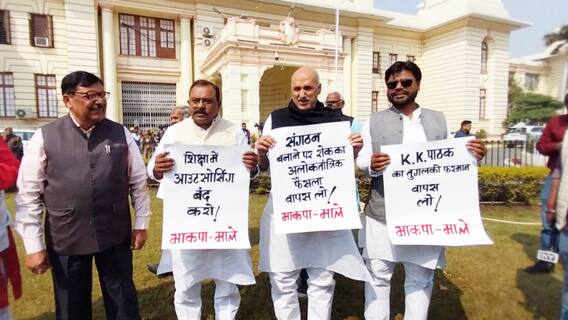 शिक्षा में
आउटसोर्सिंग
बंद
करो!
भाकपा-माले
संगठन
बनाने पर रोक का
अलोकतांत्रिक
फैसला
वापस लो!
भाकपा-माले
K.K.पाठक
का तुगलकी फरमान
वापस
लो!
भाकपा-माले